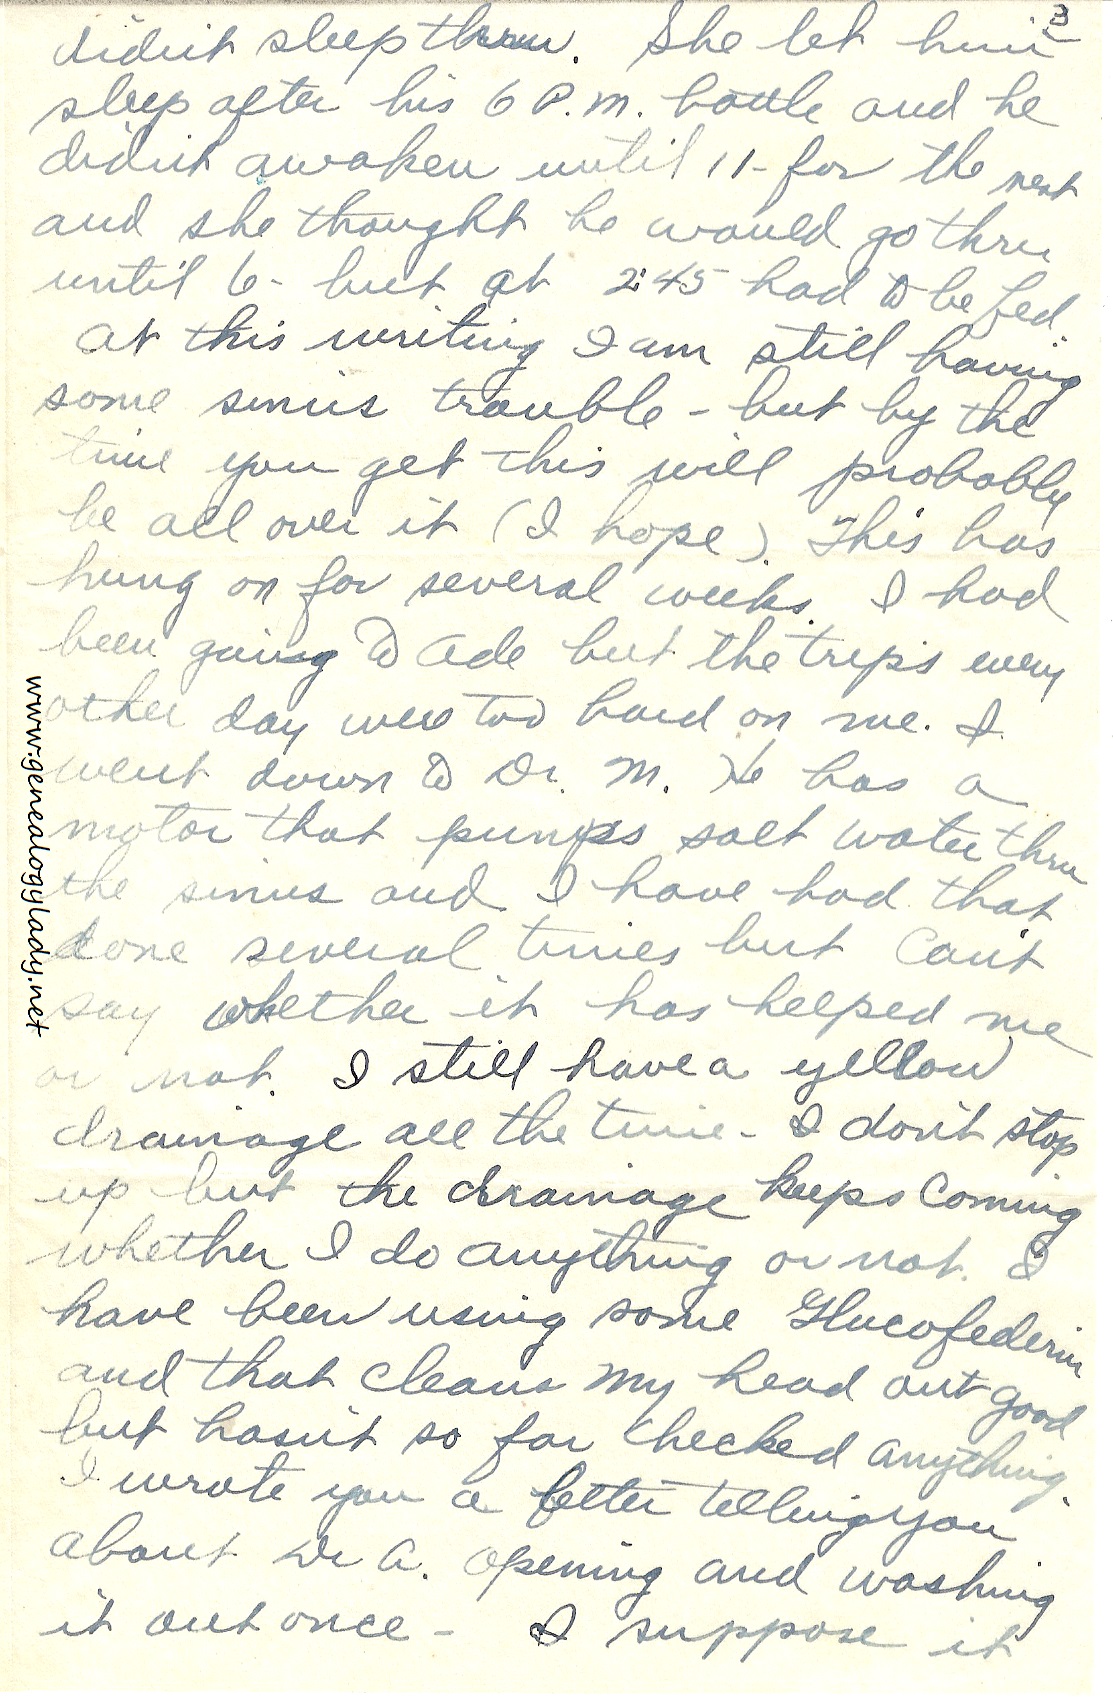 3
didn't sleep thru. She let him
sleep after his 6 P.m. bottle and he
didn't awaken until 11- for the next
and she thought he would go thru
until 6- but at 2:45 had to be fed.
At this writing I am still having
some sinus trouble - but by the
time you get this will probably
be all over it (I hope). This has
hung on for several weeks. I had
been going to Ade but the trips every
other day were too hard on me. I
went down to Dr. M. He has a
motor that pumps salt water thru
the sinus and I have had that
done several times but can't
say whether it has helped me
or not. I still have a yellow
drainage all the time - I don't stop
up but the drainage keeps coming
whether I do anything or not. I
have been using some Glucofedrin
and that cleans my head out good
but hasn't so far checked anything.
I wrote you a letter telling you
about Dr A. opening and washing
it out once - I suppose it
www.genealogylady.net